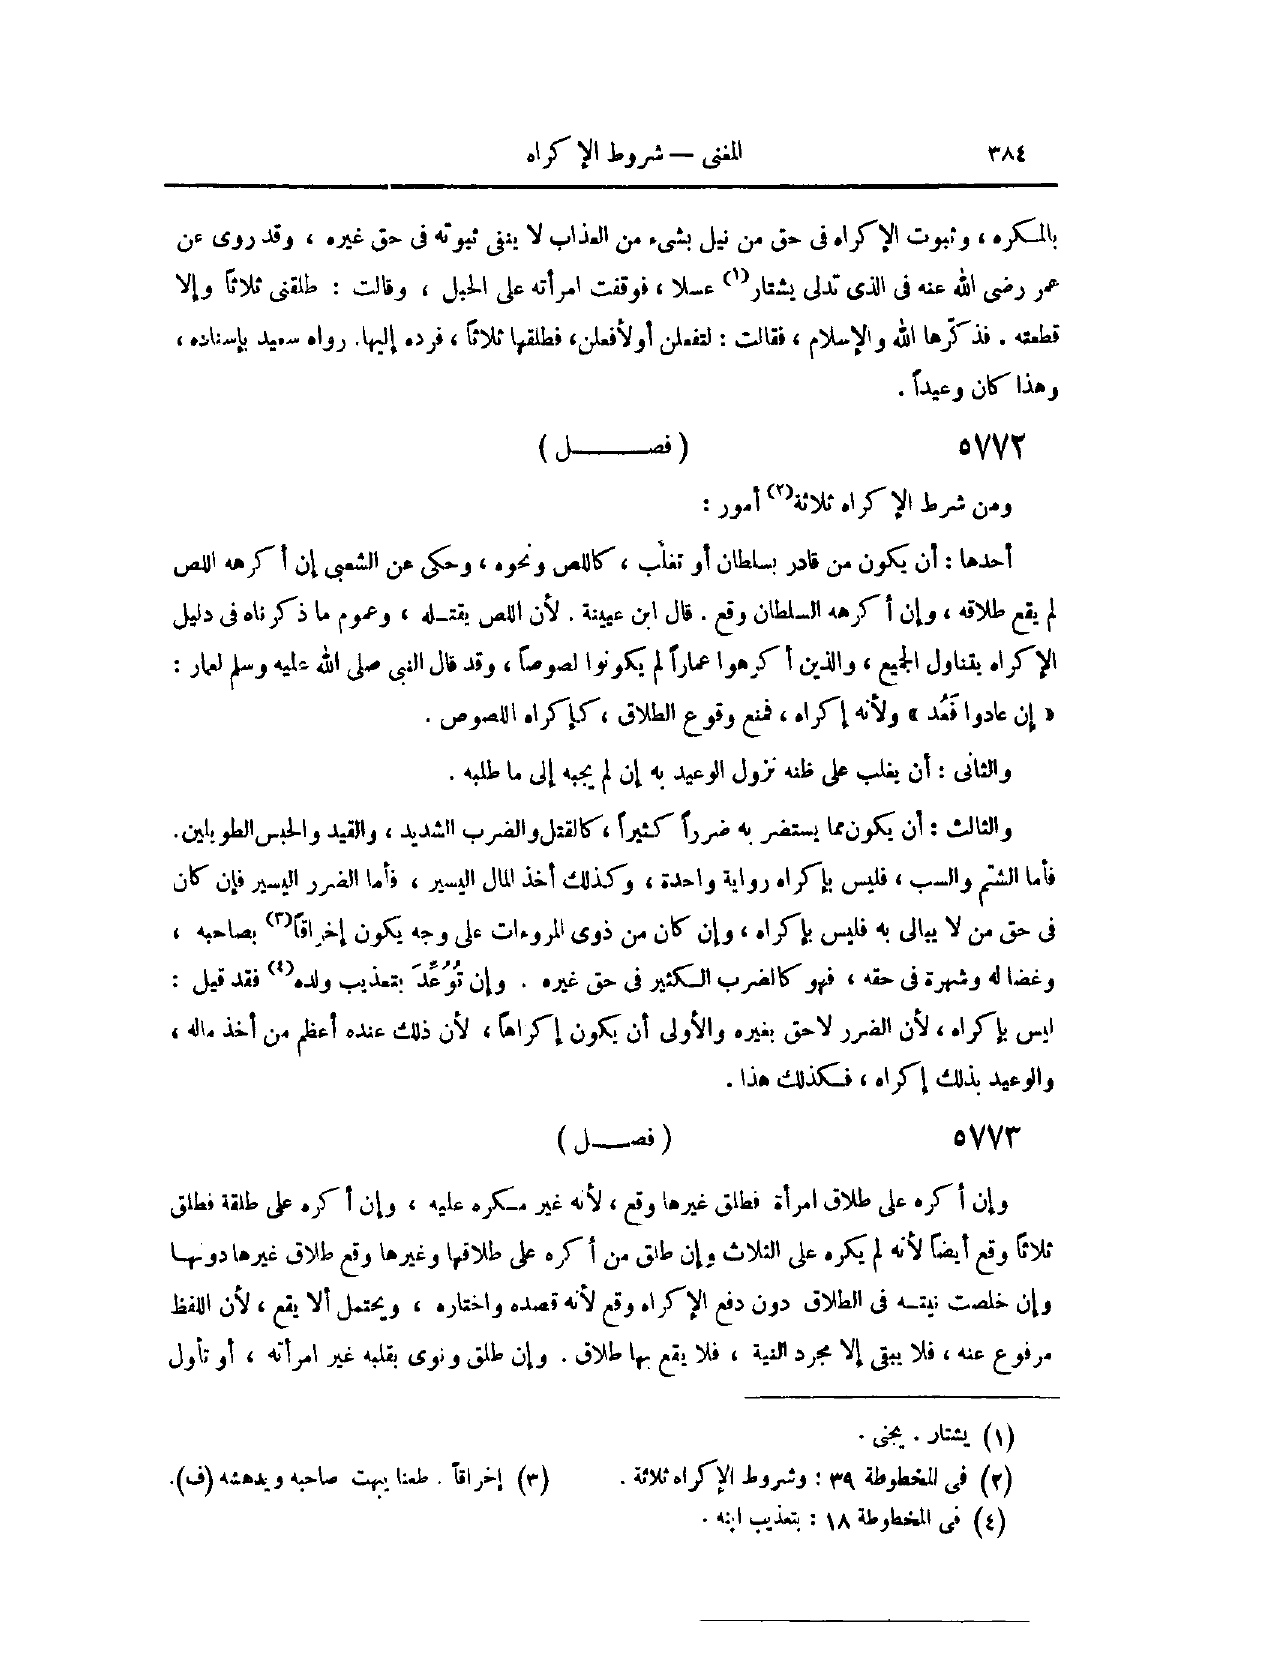 ٣٨٤ المغنى — شروط الإكراه
بالمكره ، وثبوت الإكراه فى حق من نيل بشىء من العذاب لا ينفى ثبوته فى حق غيره ، وقد روى عن
عمر رضى الله عنه فى الذى تدلى يشتار(١) عسلا ، فوقفت امرأته على الحبل ، وقالت : طلقنى ثلاثاً وإلا
قطعته . فذكّرها الله والإسلام ، فقالت : لتفعلن أو لأفعلن، فطلقها ثلاثاً ، فرده إليها. رواه سعيد بإسناده ،
وهذا كان وعيداً .
٥٧٧٢ ( فصــــــل )
ومن شرط الإكراه ثلاثة(٢) أمور :
أحدها : أن يكون من قادر بسلطان أو تغلّب ، كاللص ونحوه ، وحكى عن الشعبى إن أكرهه اللص
لم يقع طلاقه ، وإن أكرهه السلطان وقع . قال ابن عيينة . لأن اللص يقتله ، وعموم ما ذكرناه فى دليل
الإكراه يتناول الجميع ، والذين أكرهوا عماراً لم يكونوا لصوصاً ، وقد قال النبى صلى الله عليه وسلم لعمار :
« إن عادوا فَعُد » ولأنه إكراه ، فمنع وقوع الطلاق ، كإكراه اللصوص .
والثانى : أن يغلب على ظنه نزول الوعيد به إن لم يجبه إلى ما طلبه .
والثالث : أن يكون مما يستضر به ضرراً كثيراً ، كالقتل والضرب الشديد ، والقيد والحبس الطويلين.
فأما الشتم والسب ، فليس بإكراه رواية واحدة ، وكذلك أخذ المال اليسير ، فأما الضرر اليسير فإن كان
فى حق من لا يبالى به فليس بإكراه ، وإن كان من ذوى المروءات على وجه يكون إخراقاً(٣) بصاحبه ،
وغضا له وشهرة فى حقه ، فهو كالضرب الكثير فى حق غيره . وإن تُوُعِّدَ بتعذيب ولده(٤) فقد قيل :
ليس بإكراه ، لأن الضرر لاحق بغيره والأولى أن يكون إكراهاً ، لأن ذلك عنده أعظم من أخذ ماله ،
والوعيد بذلك إكراه ، فكذلك هذا .
٥٧٧٣ ( فصـــل )
وإن أكره على طلاق امرأة فطلق غيرها وقع ، لأنه غير مكره عليه ، وإن أكره على طلقة فطلق
ثلاثاً وقع أيضاً لأنه لم يكره على الثلاث وإن طلق من أكره على طلاقها وغيرها وقع طلاق غيرها دونها
وإن خلصت نيته فى الطلاق دون دفع الإكراه وقع لأنه قصده واختاره ، ويحتمل ألا يقع ، لأن اللفظ
مرفوع عنه ، فلا يبقى إلا مجرد النية ، فلا يقع بها طلاق . وإن طلق ونوى بقلبه غير امرأته ، أو تأول
(١) يشتار . يجنى .
(٢) فى المخطوطة ٣٩ : وشروط الإكراه ثلاثة . (٣) إخراقاً . طعنا يبهت صاحبه ويدهشه (ف).
(٤) فى المخطوطة ١٨ : بتعذيب ابنه .